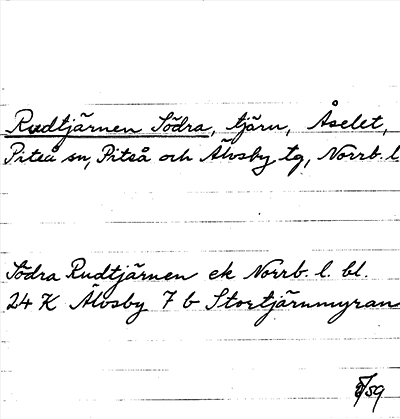 Rudtjärnen Södra, tjärn, Åselet,
Piteå sn, Piteå och Älvsby tg, Norrb. l
Södra Rudtjärnen ek Norrb. l. bl.
24 K Älvsby 7 b Stortjärnmyran
/59